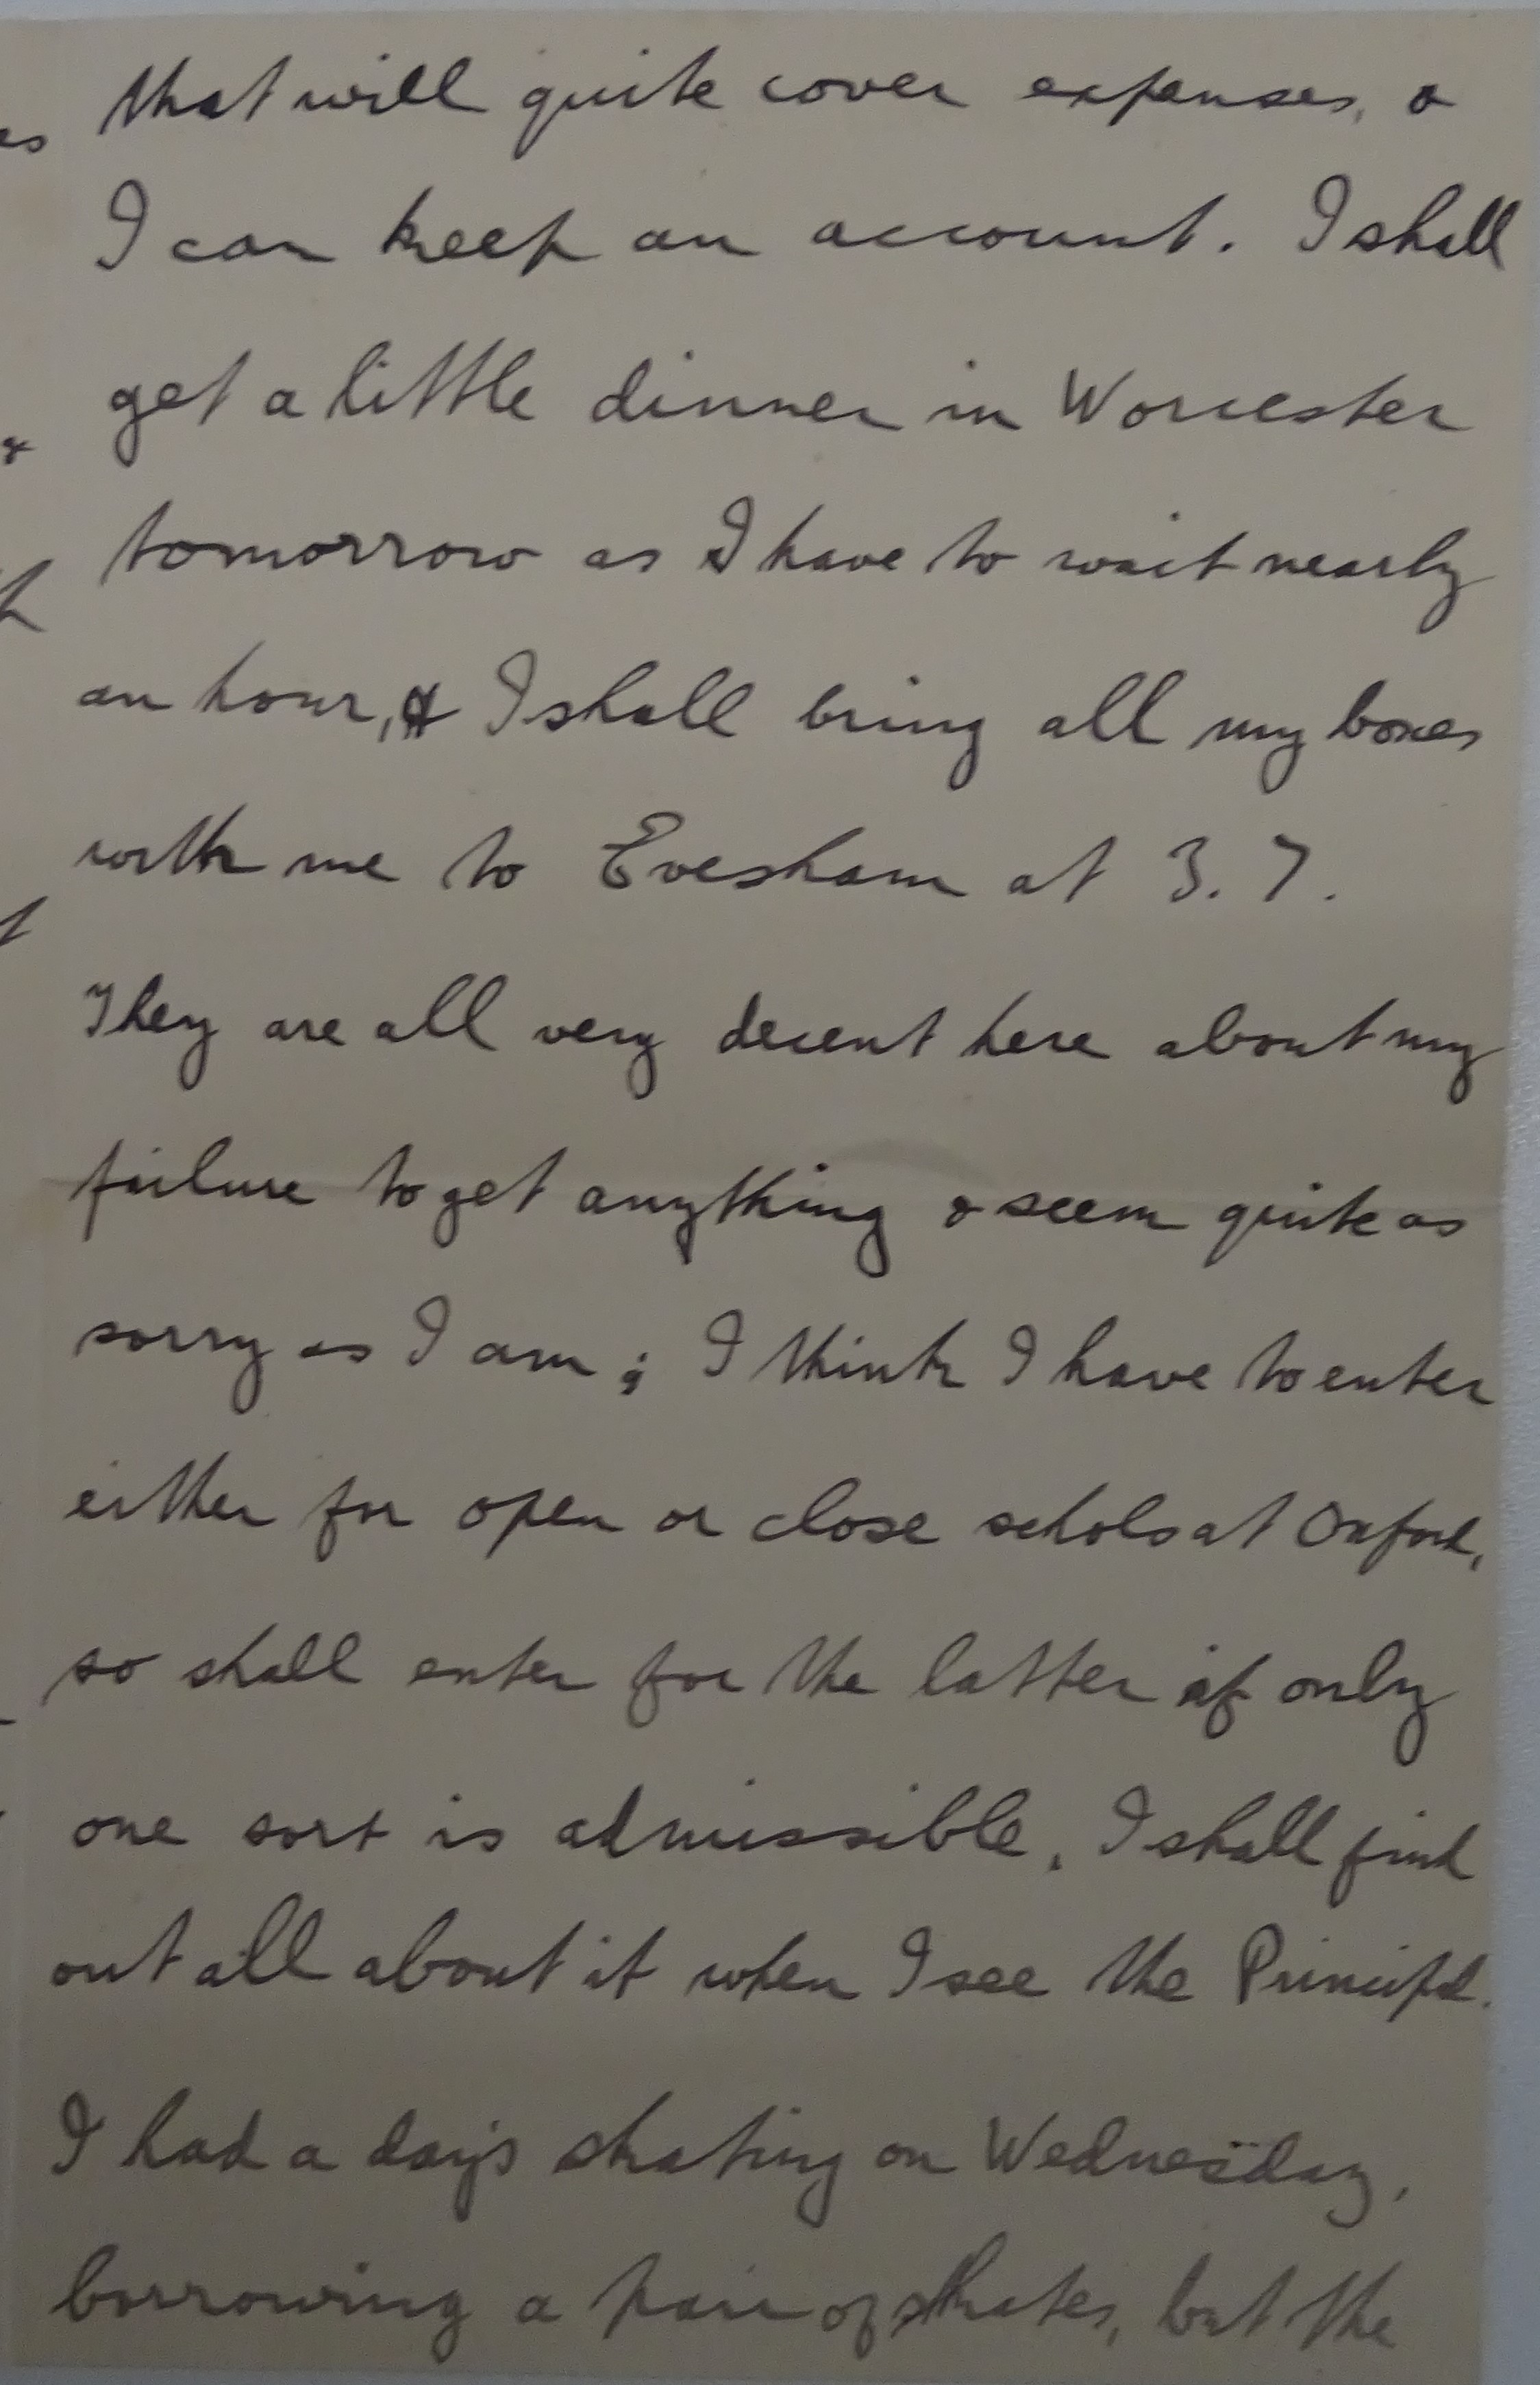 that will quite cover expenses, &
I can keep an account. I shall
get a little dinner in Worcester
tomorrow as I have to wait nearly
an hour, & I shall bring all my boxes
with me to Evesham at 3.7.
They are all very decent here about my
failure to get anything & seem quite as
sorry as I am; I think I have to enter
either for open or close schols at Oxford,
so shall enter for the latter if only
one sort is admissible. I shall find
out all about it when I see the Principal.
I had a day's skating on Wednesday,
borrowing a pair of skates, but the